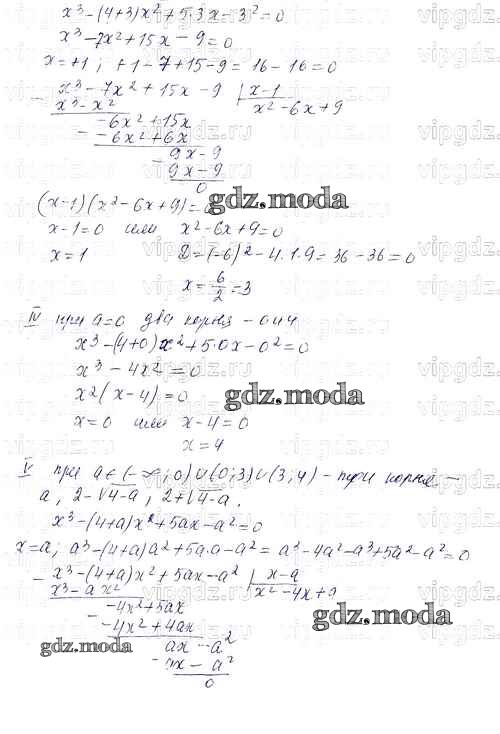 x³-(4+3)x²+5·3x-3²=0
x³-7x²+15x-9=0
x=+1; +1-7+15-9=16-16=0
x³-7x²+15x-9 | x-1
x³-x² x²-6x+9
-6x²+15x
-6x²+6x
9x-9
9x-9
0
(x-1)(x²-6x+9)=0
x-1=0 или x²-6x+9=0
x=1 D=(-6)²-4·1·9=36-36=0
x=6/2=3
IV при a=0 два корня - 0 и 4
x³-(4+0)x²+5·0x-0²=0
x³-4x²=0
x²(x-4)=0
x=0 или x-4=0
x=4
V при a∈(-∞;0)∪(0;3)∪(3;4) - три корня -
a, 2-√4-a, 2+√4-a.
x³-(4+a)x²+5ax-a²=0
x=a; a³-(4+a)a²+5a·a-a²=a³-4a²-a³+5a²-a²=0
x³-(4+a)x²+5ax-a² | x-a
x³-ax² x²-4x+a
-4x²+5ax
-4x²+4ax
ax-a²
ax-a²
0
gdz.moda
gdz.moda
gdz.moda
gdz.moda
vipgdz.ru